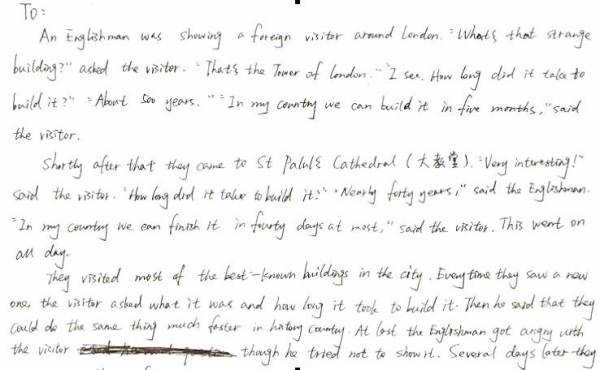 To:
An Englishman was showing a foreign visitor around London. "What's that strange
building?" asked the visitor. "That's the Tower of London." "I see. How long did it take to
build it?" "About 500 years." "In my country we can build it in five months," said
the visitor.
Shortly after that they came to St Palul's Cathedral (大教堂). "Very interesting!"
said the visitor. "How long did it take to build it?" "Nearly forty years," said the Englishman.
"In my country we can finish it in fourty days at most," said the visitor. This went on
all day.
They visited most of the best-known buildings in the city. Everytime they saw a new
one, the visitor asked what it was and how long it took to build it. Then he said that they
could do the same thing much faster in country. At last the Englishman got angry with
the visitor though he tried not to show it. Several days later they